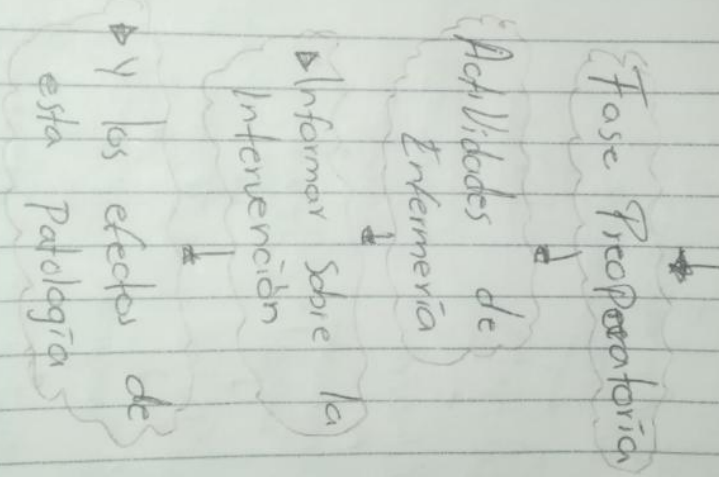 Fase Preoperatoria
Actividades de
Enfermería
Informar Sobre la
Intervención
Y los efectos de
esta Patología